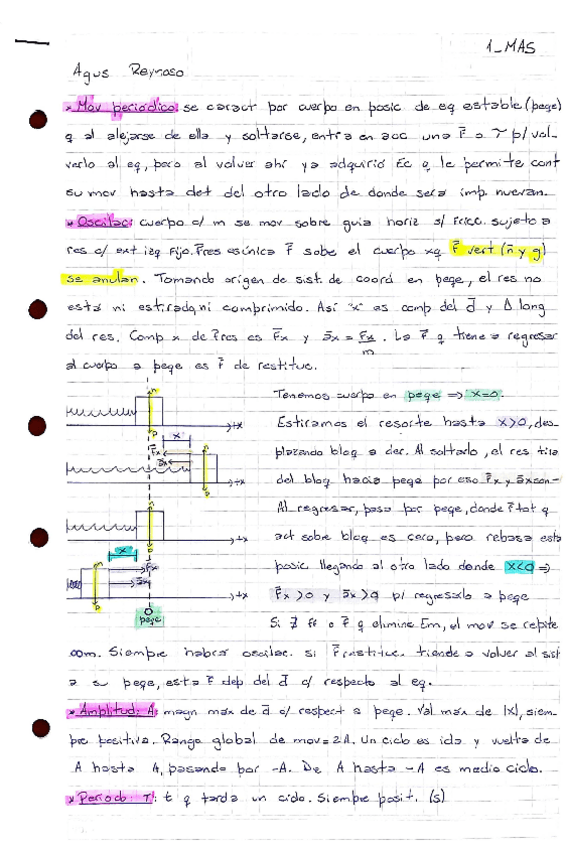 1_MAS
Agus Reynoso
* Mov periódico: se caract por cuerpo en posic de eq estable (peqe)
q al alejarse de ella y soltarse, entra en acc una F o τ p/ vol-
verlo al eq, pero al volver ahí ya adquirió Ec q le permite cont
su mov hasta det del otro lado de donde será imp nuevam.
* Oscilac: cuerpo c/ m se mov sobre guía horiz s/ fricc. sujeto a
res c/ ext izq fijo. Fres es única F sobe el cuerpo xq F vert (n y g)
se anulan. Tomando origen de sist. de coord en peqe, el res no
está ni estirado, ni comprimido. Así "x" es comp del d y Δ long
del res. Comp x de Fres es Fx y ax = Fx/m. La F q tiene a regresar
al cuerpo a peqe es F de restituc.
Tenemos cuerpo en peqe => x=0.
Estiramos el resorte hasta x>0, des-
plazando bloq a der. Al soltarlo, el res tira
del bloq hacia peqe por eso Fx y ax son -
Al regresar, pasa por peqe, donde F tot q
act sobre bloq es cero, pero rebasa esta
posic. llegando al otro lado donde x<0 =>
Fx>0 y ax>0 p/ regresarlo a peqe
Si ∄ ff o F q elimine Em, el mov se repite
com. Siempre habrá oscilac. si F restituc. tiende a volver al sist
a su peqe, esta F dep del d c/ respecto al eq.
* Amplitud: A: magn máx de d c/ respect a peqe. Val máx de |x|, siem-
pre positiva. Rango global de mov = 2A. Un ciclo es ida y vuelta de
A hasta A, pasando por -A. De A hasta -A es medio ciclo.
* Período: T: t q tarda un ciclo. Siempre posit. (s)
n
+x
p
x
Fx
ax
+x
+x
x
Fx
ax
+x
O
peqe